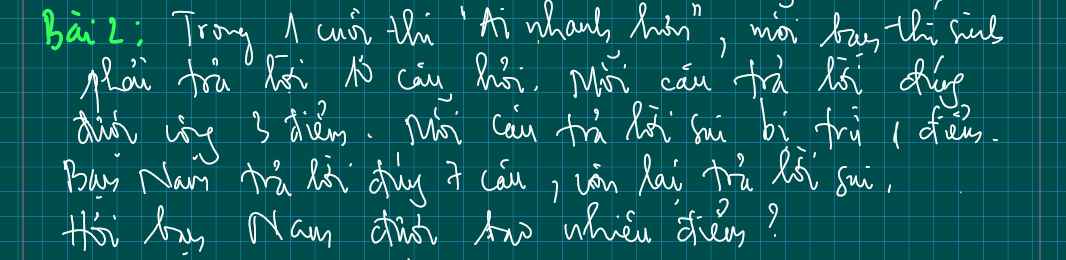 Bài 2: Trong 1 cuộc thi "Ai nhanh hơn", mỗi bạn thí sinh
phải trả lời 10 câu hỏi. Mỗi câu trả lời đúng
được cộng 3 điểm. Mỗi câu trả lời sai bị trừ 1 điểm.
Bạn Nam trả lời đúng 7 câu, còn lại trả lời sai.
Hỏi bạn Nam được bao nhiêu điểm?